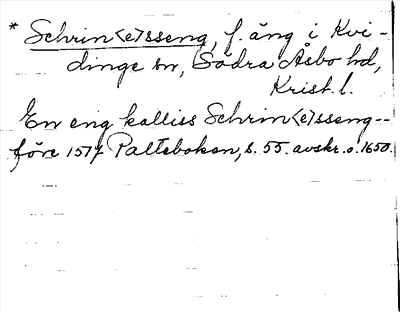 * Schrin<e>sseng, f. äng i Kvi-
dinge sn, Södra Åsbo hd,
Krist. l.
En eng kalliss Schrin<e>sseng--
före 1517 Paltebokan, s. 55. avskr. o. 1650.